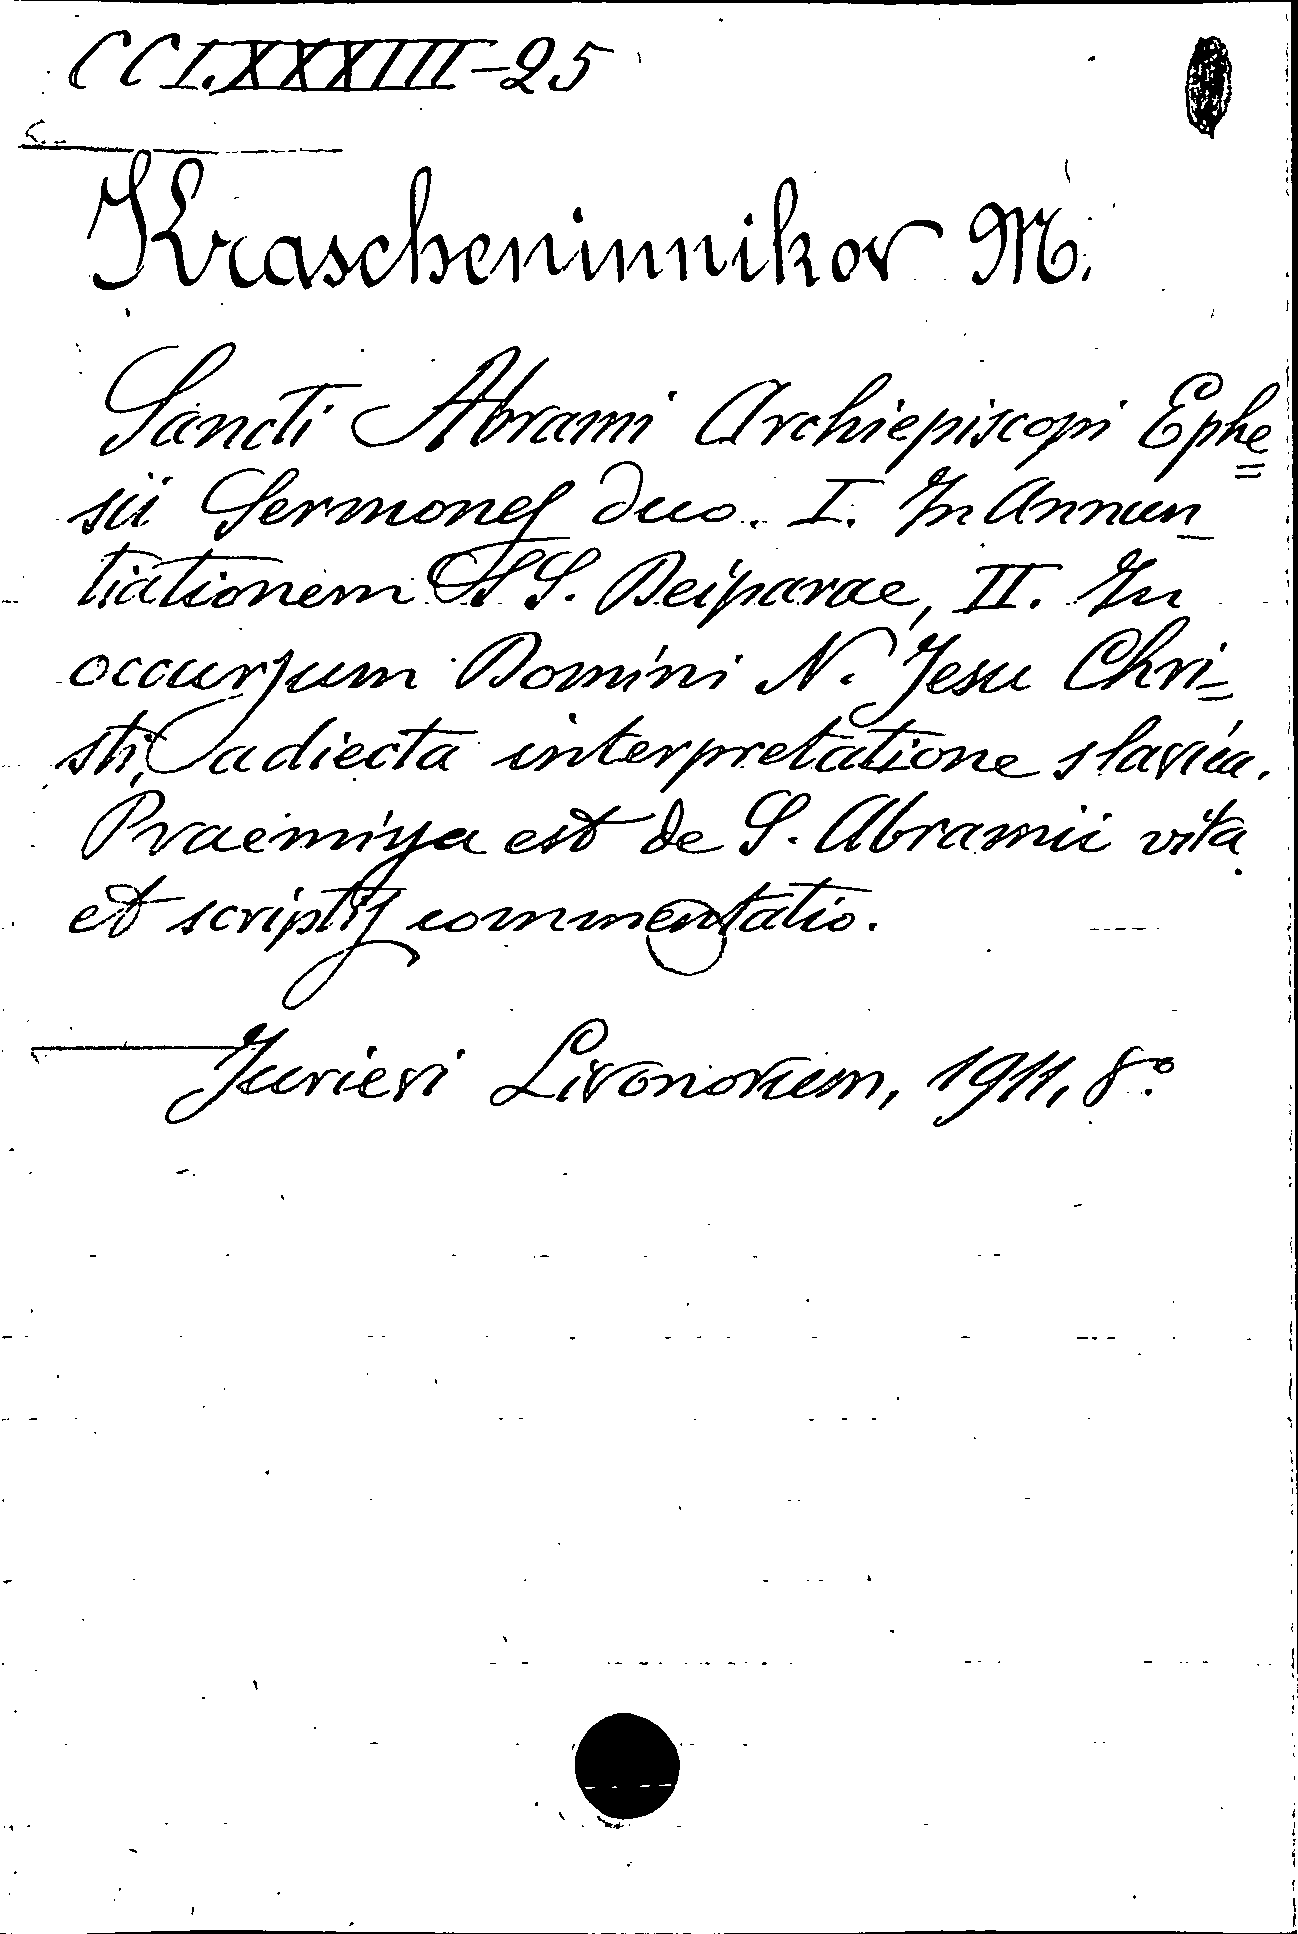 CCLXXXIII-25
Krascheninnikov M.
Sancti Abrami Archiepiscopi Ephe=
sii Sermones duo. I. In Annun_
tiationem SS. Deiparae, II. In
occursum Domini N. Jesu Chri=
sti, adiecta interpretatione slavica.
Praemissa est de S. Abramii vita
et scriptis commentatio.
Jurievi Livonorum, 1911, 8°